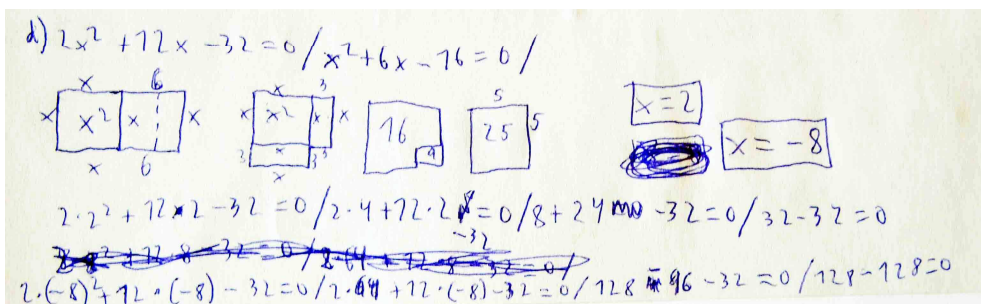 d) 2x² + 12x - 32 = 0 / x² + 6x - 16 = 0 /
x 6 x 3 5
x x² x x x x² x x 16 25 5 x = 2
3 x 3 3 9 x = -8
x 6 x
2·2² + 12·2 - 32 = 0 / 2·4 + 12·2 - 32 = 0 / 8 + 24 - 32 = 0 / 32 - 32 = 0
2·(-8)² + 12·(-8) - 32 = 0 / 2·64 + 12·(-8) - 32 = 0 / 128 - 96 - 32 = 0 / 128 - 128 = 0